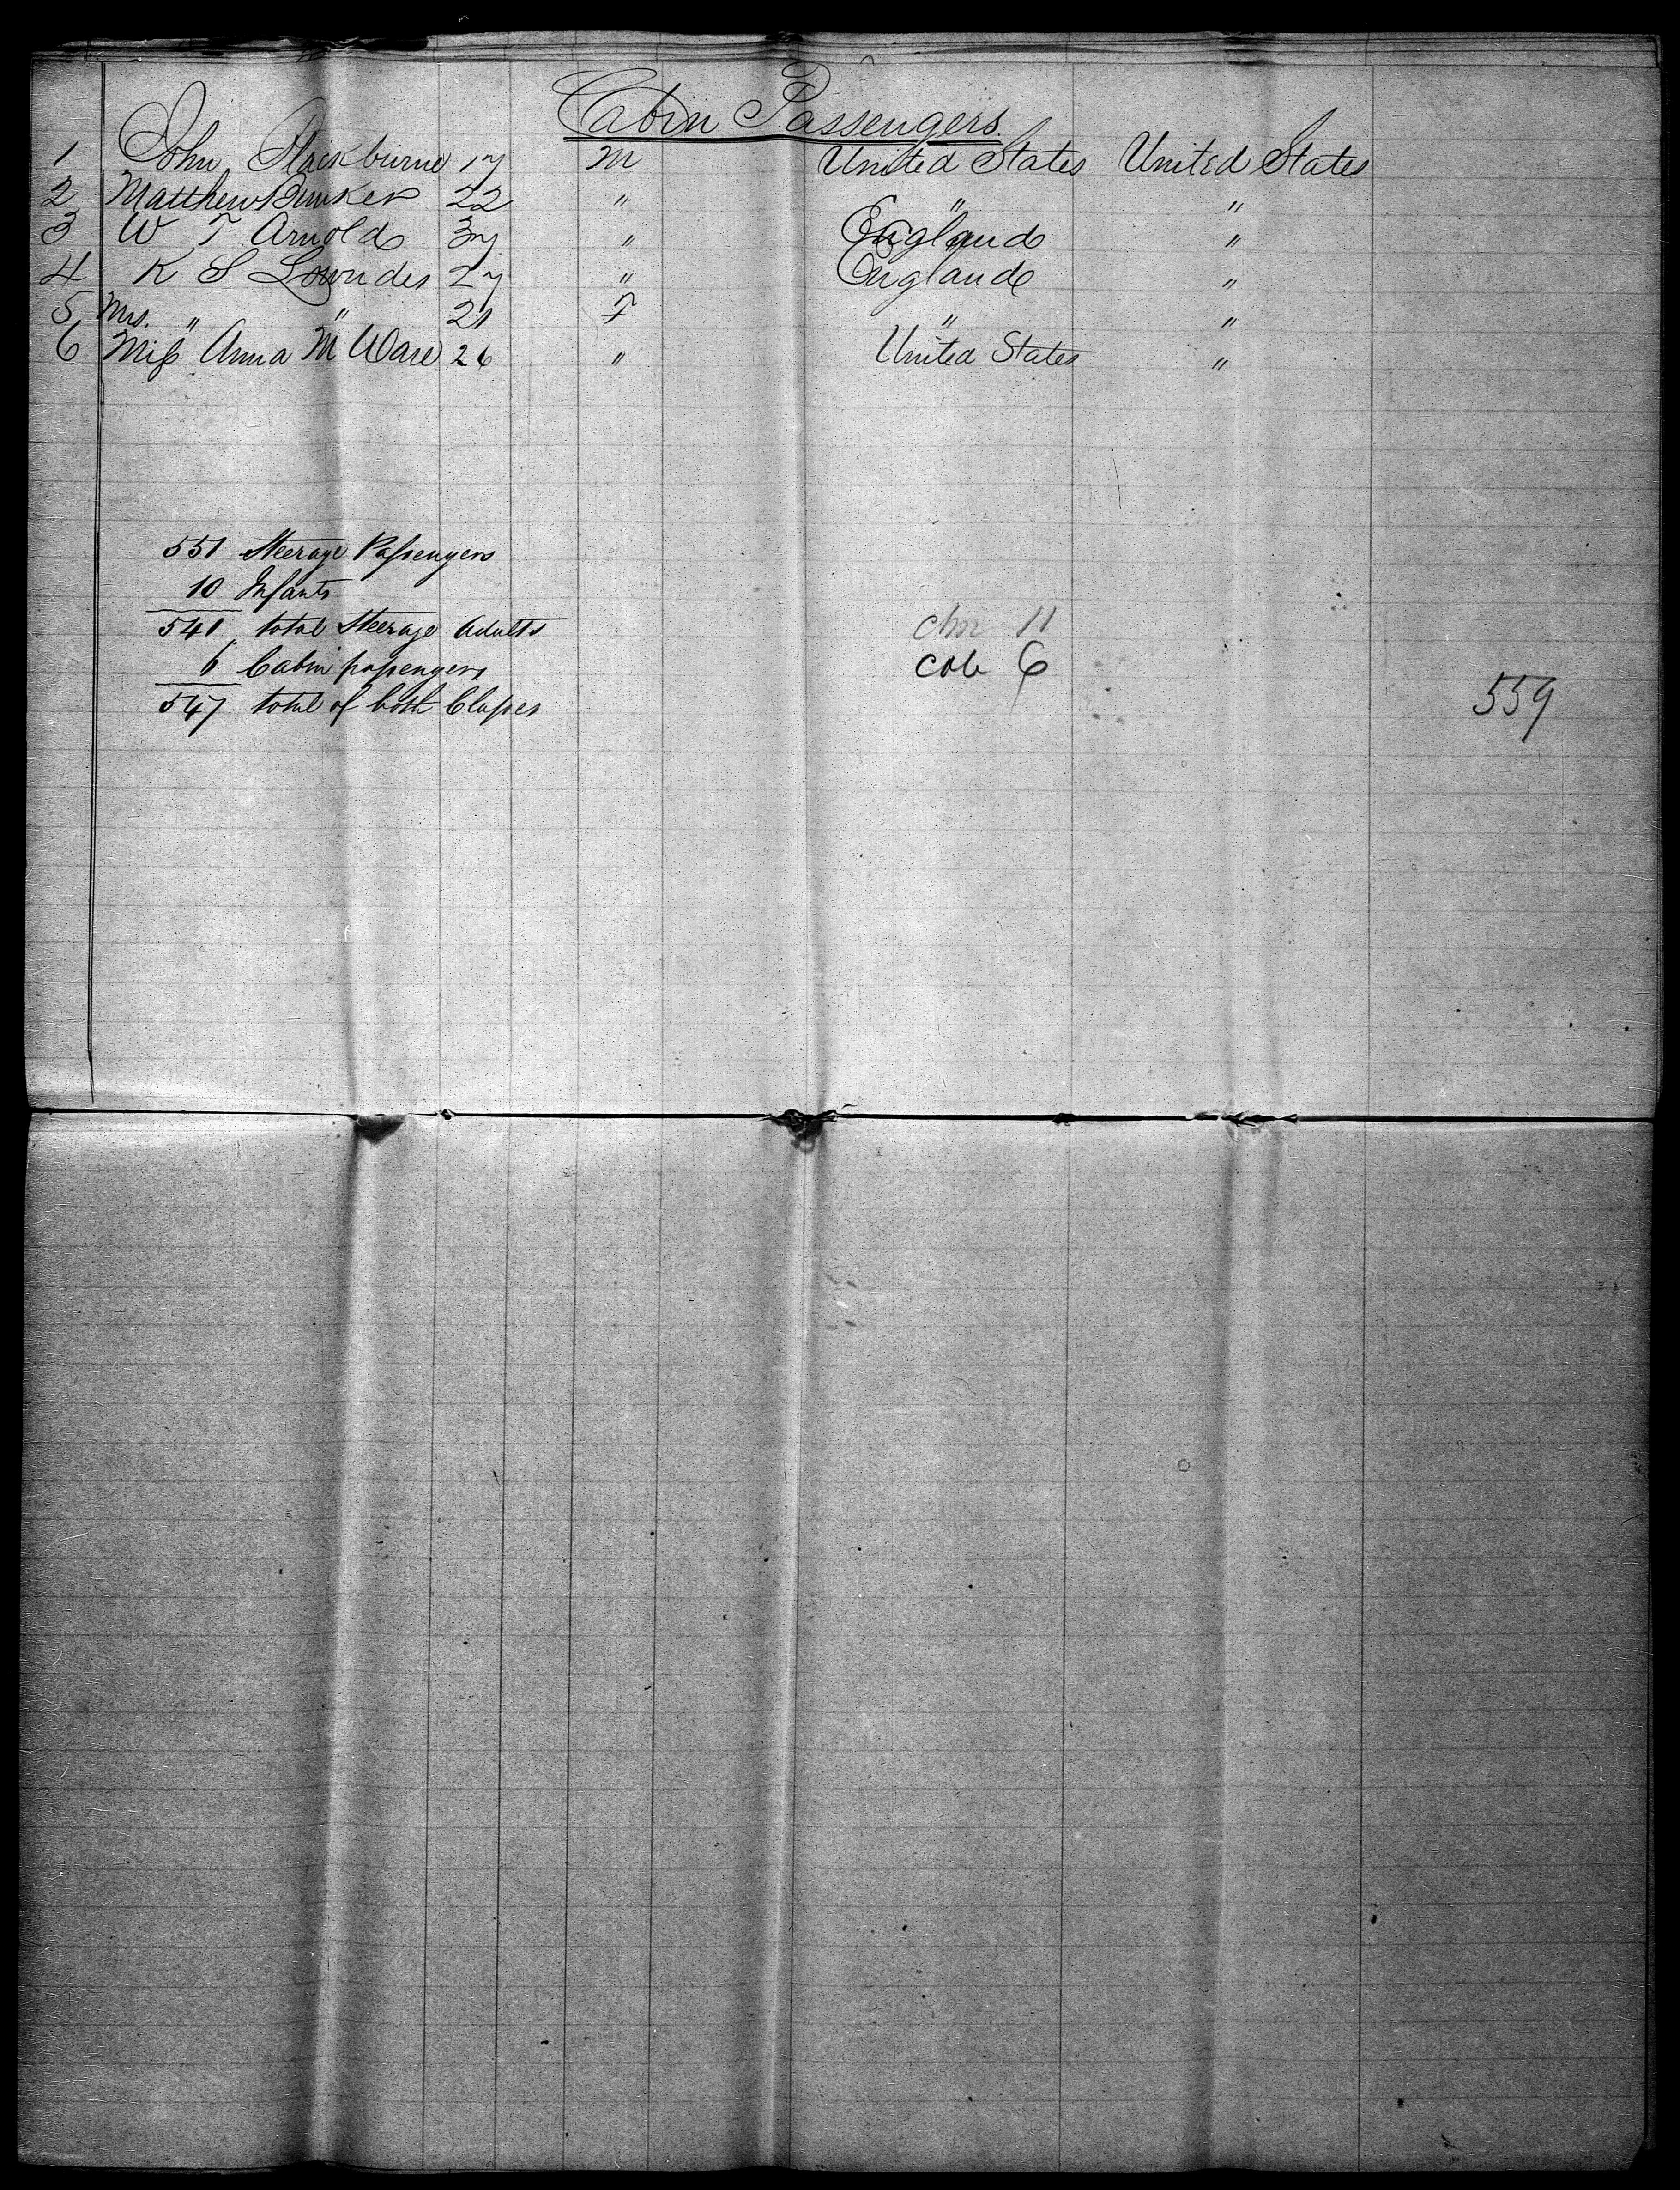 Cabin Passengers.
1 John Blackburne 17 M United States United States
2 Matthew Bunker 22 " " "
3 W T Arnold 37 " England "
4 R S Lowndes 27 " England "
5 Mrs. " " 21 F " "
6 Miss Anna M Ware 26 " United States "
551 Steerage Passengers
10 Infants
541 total Steerage Adults
6 Cabin passengers
547 total of both Classes
11
cab 6
559